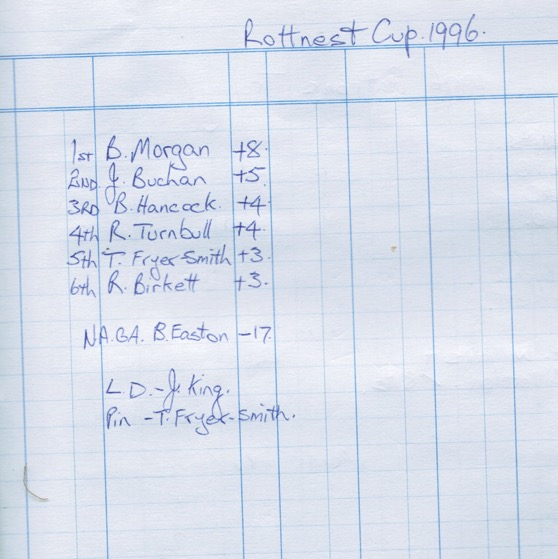 Rottnest Cup. 1996.
1st B. Morgan +8.
2ND J. Buchan +5.
3RD B. Hancock. +4
4th R. Turnbull +4.
5th T. Fryer-Smith +3.
6th R. Birkett +3.
N.A.G.A. B. Easton -17.
L.D. - J. King.
Pin - T. Fryer-Smith.